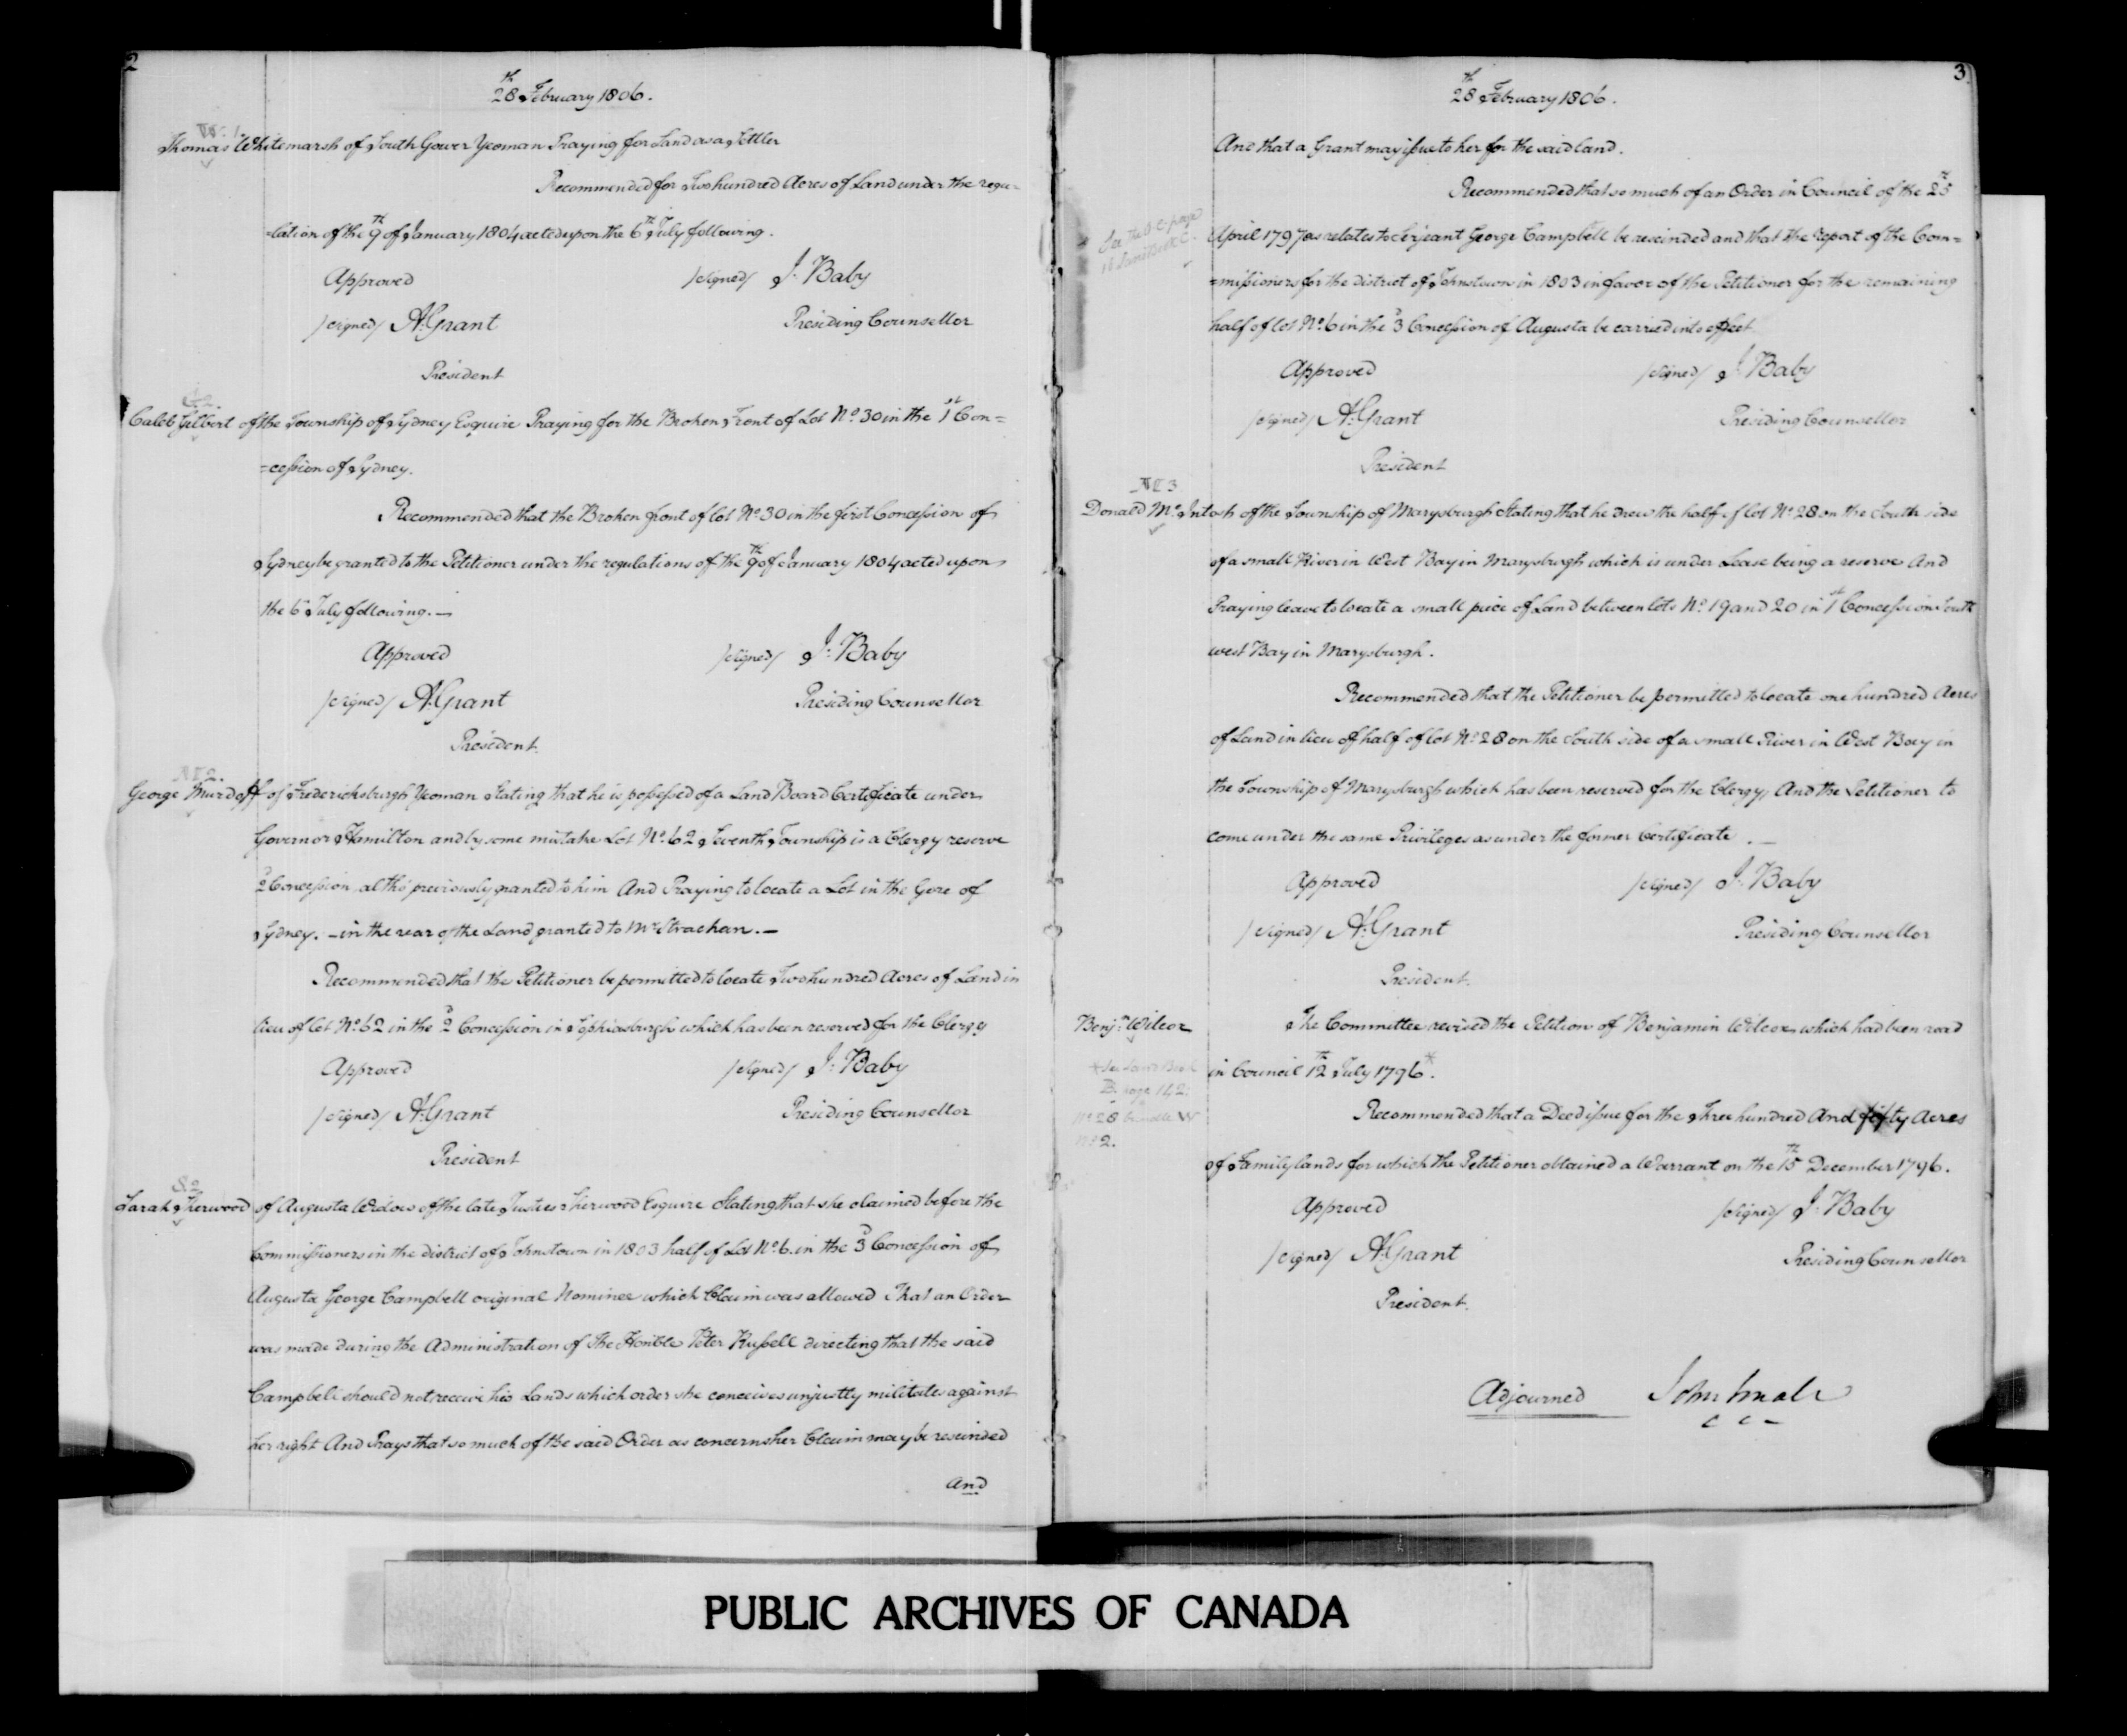 2
28th February 1806.
W. 1
Thomas Whitemarsh of South Gower Yeoman Praying for Land as a Settler
Recommended for Two hundred Acres of Land under the regu=
=lation of the 9th of January 1804 acted upon the 6th July following.
Approved /signed/ J. Baby
/signed/ A. Grant Presiding Counsellor
President
G 2
Caleb Gilbert of the Township of Sydney Esquire Praying for the Broken Front of Lot No. 30 in the 1st Con=
=cession of Sydney.
Recommended that the Broken front of lot No. 30 in the first Concession of
Sydney be granted to the Petitioner under the regulations of the 9th of January 1804 acted upon
the 6th July following. —
Approved /signed/ J. Baby
/signed/ A. Grant Presiding Counsellor
President.
M 2.
George Murdoff of Fredericksburgh Yeoman Stating that he is possessed of a Land Board Certificate under
Governor Hamilton and by some mistake Lot No. 62 Seventh Township is a Clergy reserve
2d Concession, altho' previously granted to him And Praying to locate a Lot in the Gore of
Sydney. – in the rear of the Land granted to Mr. Strachan. —
Recommended that the Petitioner be permitted to locate Two hundred Acres of Land in
lieu of lot No. 62 in the 2d Concession in Sophiasburgh which has been reserved for the Clergy
Approved /signed/ J. Baby
/signed/ A. Grant Presiding Counsellor
President
S. 2
Sarah Sherwood of Augusta Widow of the late Justus Sherwood Esquire Stating that she claimed before the
Commissioners in the district of Johnstown in 1803 half of Lot No. 6. in the 3d Concession of
Augusta George Campbell original Nominee which Claim was allowed That an Order
was made during the Administration of the Honble Peter Russell directing that the said
Campbell should not receive his Lands which order she conceives unjustly militates against
her right And Prays that so much of the said Order as concerns her Claim may be rescinded
and
3
28th February 1806.
And that a Grant may issue to her for the said land.
Recommended that so much of an Order in Council of the 25th
April 1797 as relates to Serjeant George Campbell be rescinded and that the report of the Com=
=missioners for the district of Johnstown in 1803 in favor of the Petitioner for the remaining
half of lot No. 6 in the 3d Concession of Augusta be carried into effect
See the O C page
Approved /signed/ J. Baby
/signed/ A. Grant Presiding Counsellor
President
M 3
Donald McIntosh of the Township of Marysburgh Stating that he drew the half of lot No. 28 on the South side
of a small River in West Bay in Marysburgh which is under Lease being a reserve And
Praying leave to locate a small piece of Land between lots No. 19 and 20 in 1st Concession South
west Bay in Marysburgh.
Recommended that the Petitioner be permitted to locate one hundred Acres
of Land in lieu of half of lot No. 28 on the South side of a small River in West Bay in
the Township of Marysburgh which has been reserved for the Clergy, And the Petitioner to
come under the same Privileges as under the former Certificate. —
Approved /signed/ J. Baby
/signed/ A. Grant Presiding Counsellor
President.
Benjn. Wilcox The Committee revised the Petition of Benjamin Wilcox which had been read
in Council 12th July 1796*.
*See Land Book
B. page 142.
No. 28 bundle W
No. 2.
Recommended that a Deed issue for the Three hundred And fifty Acres
of Family lands for which the Petitioner obtained a Warrant on the 15th December 1796.
Approved /signed/ J. Baby
/signed/ A. Grant Presiding Counsellor
President.
Adjourned John Small
C C –
PUBLIC ARCHIVES OF CANADA